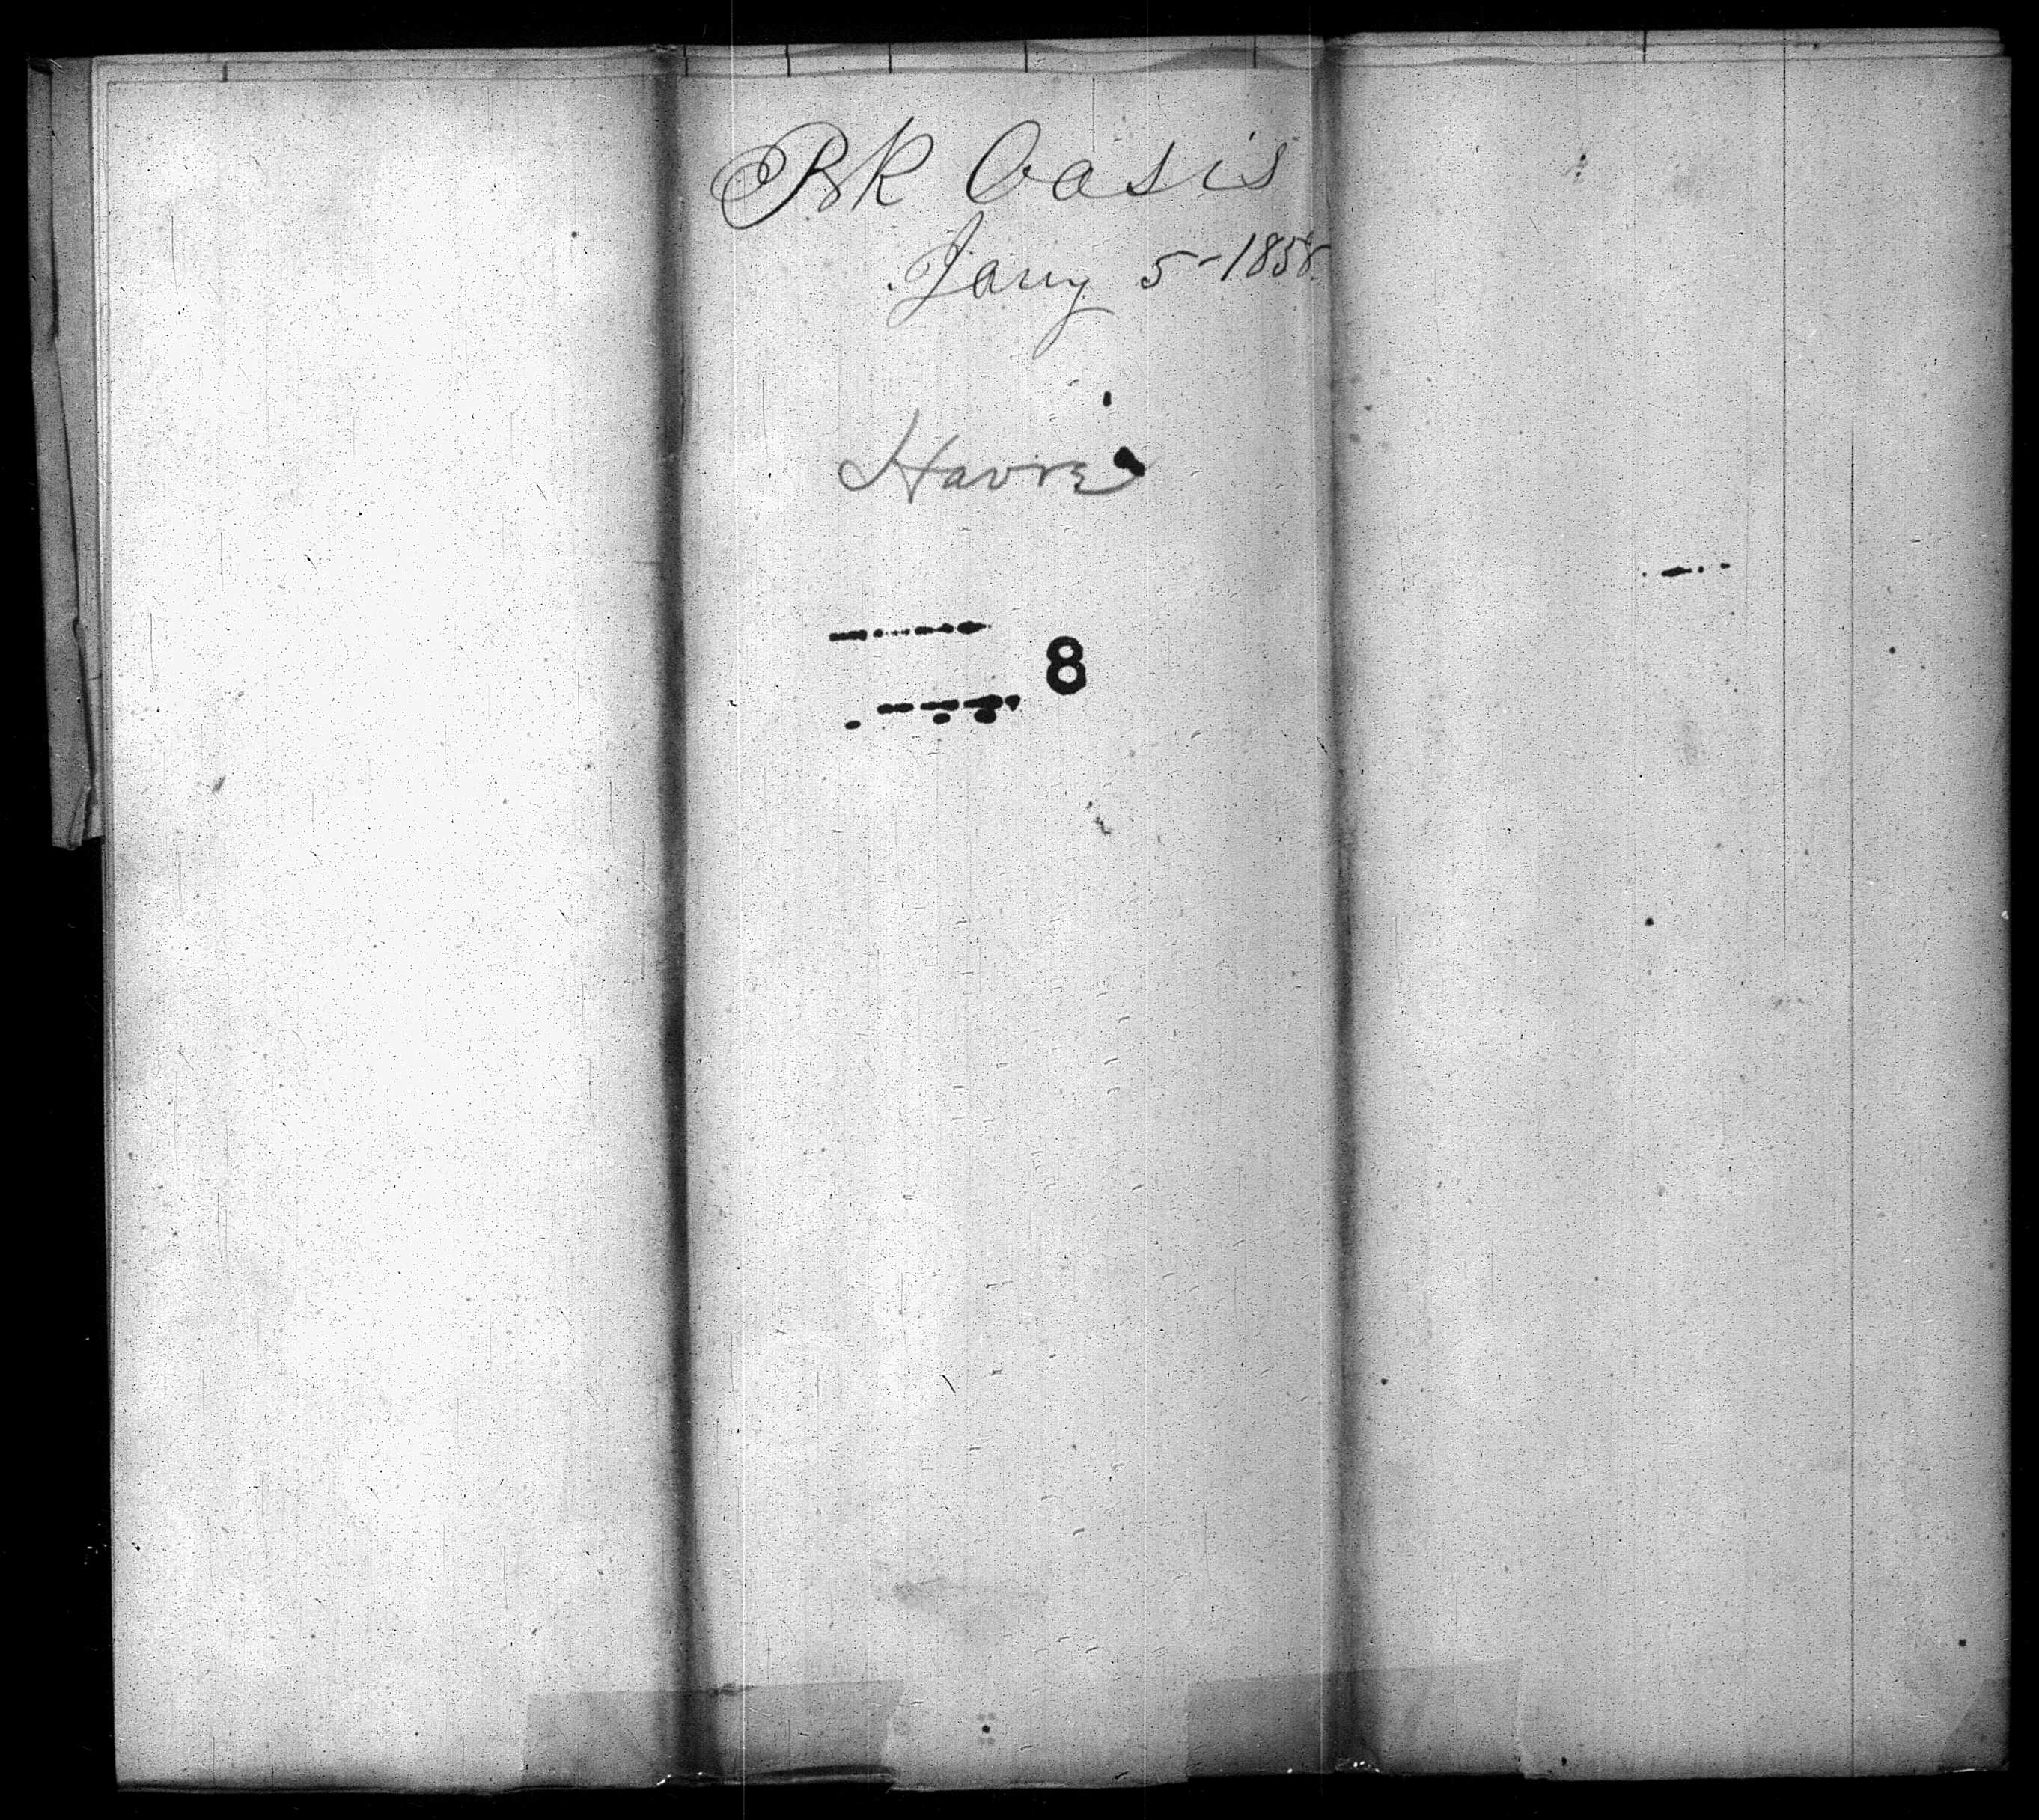 Bk Oasis
Jany 5-1858
Havre
8